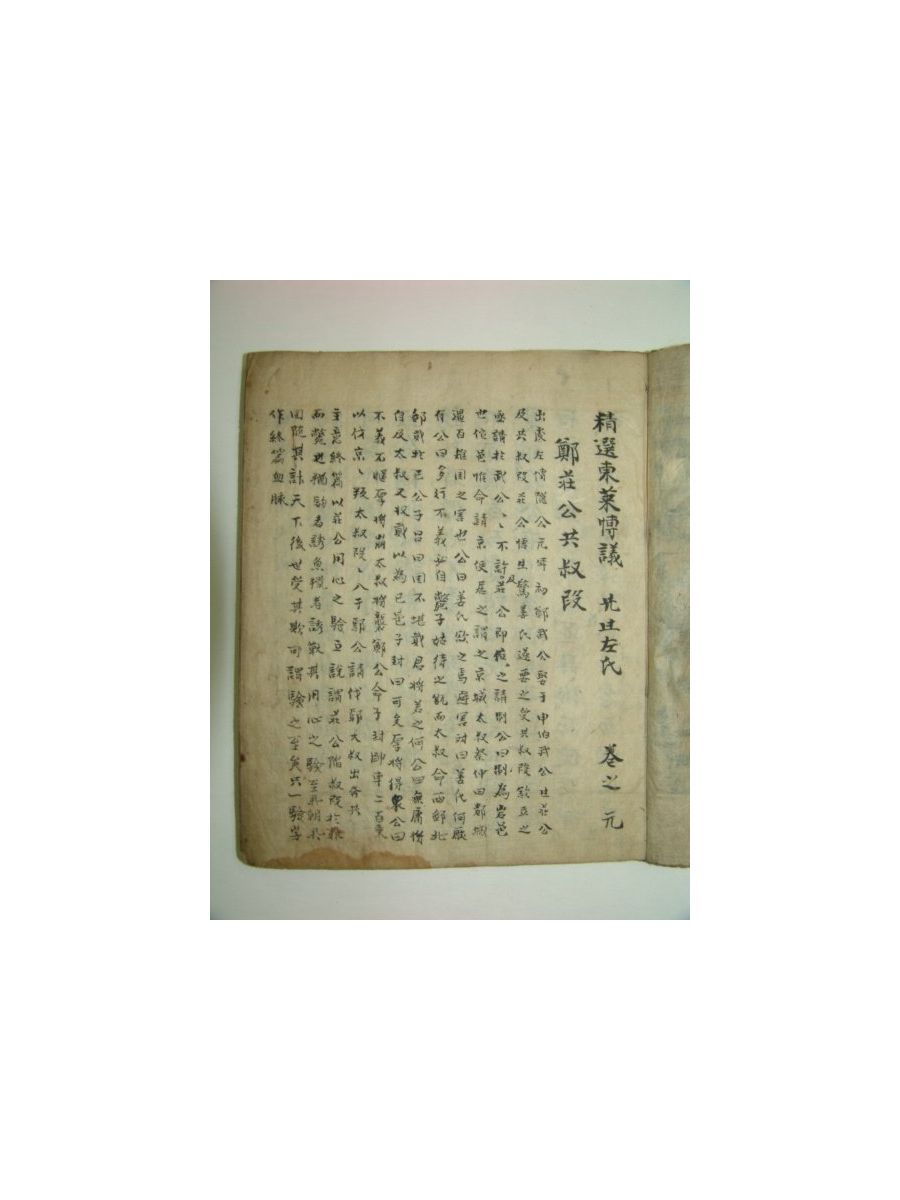 精選東萊博議 先生左氏 卷之元
鄭莊公共叔段
出處左傳隱公元年初鄭武公娶于申曰武公生莊公
及共叔段莊公寤生驚姜氏遂惡之愛共叔段欲立之
亟請於武公〻不許及莊公即位之請制公曰制為岩邑
也他邑惟命請京使居之謂之京城太叔祭仲曰都城
過百雉国之害也公曰姜氏欲之焉避害対曰姜氏何厭
有公曰多行不義必自斃子姑待之既而太叔命西鄙北
鄙貳於己公子呂曰国不堪貳君将若之何公曰無庸将
自及太叔又收貳以為己邑子封曰可矣厚将得衆公曰
不義不暱厚将崩太叔将襲鄭公命子封帥車二百乗
以伐京〻叛太叔段〻入于鄢公請伐鄢大叔出奔共
主意終篇以莊公用心之險立說謂莊公陷叔段於罪
而斃也猶釣者誘魚獵者誘獸其用心之險至於朝共
国隨其計天下後世受其欺可謂險之至矣只一險字
作終篇血脉